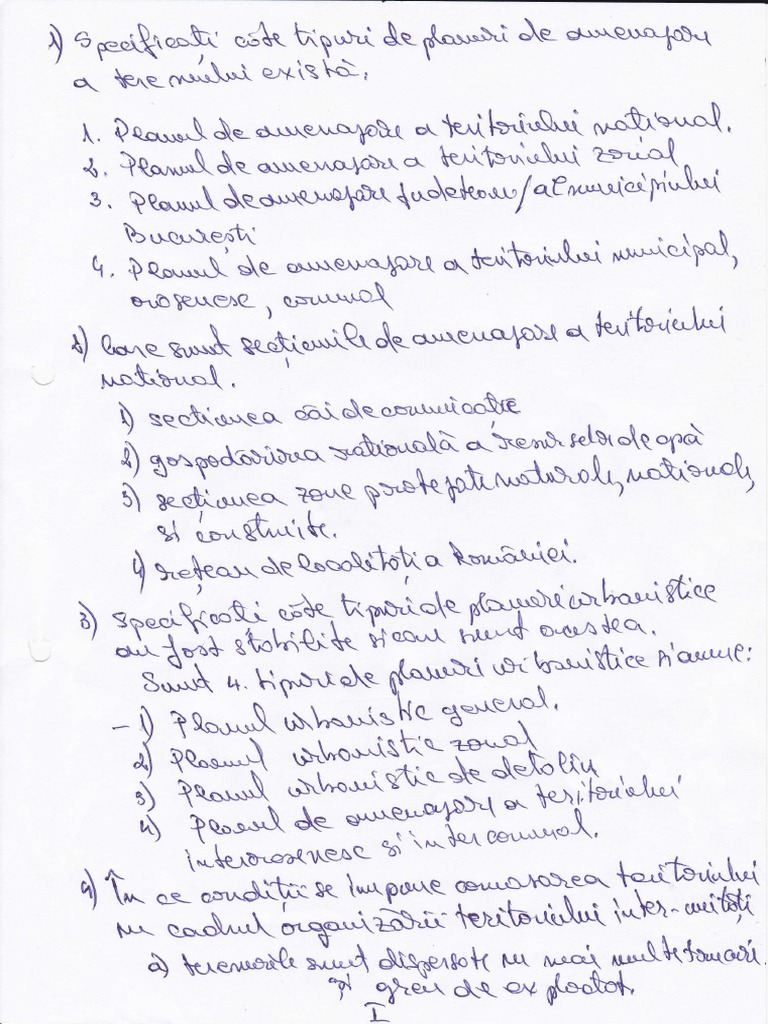 1) Specificați câte tipuri de planuri de amenajare
a terenului există.
1. Planul de amenajare a teritoriului național.
2. Planul de amenajare a teritoriului zonal
3. Planul de amenajare județean/al municipiului
București
4. Planul de amenajare a teritoriului municipal,
orășenesc, comunal
2) Care sunt secțiunile de amenajare a teritoriului
național.
1) secțiunea căi de comunicație
2) gospodărirea rațională a resurselor de apă
3) secțiunea zone protejate naturale, naționale,
și construite.
4) rețeau de localități a României.
3) Specificați câte tipuri de planuri urbanistice
au fost stabilite și care sunt acestea.
Sunt 4. tipuri de planuri urbanistice și anume:
- 1) Planul urbanistic general.
2) Planul urbanistic zonal
3) Planul urbanistic de detaliu
4) Planul de amenajare a teritoriului
interorășenesc și intercomunal.
4) În ce condiții se impune comasarea teritoriului
în cadrul organizării teritoriului inter-unități
a) terenurile sunt dispersate în mai multe trupuri
și greu de exploatat.
I